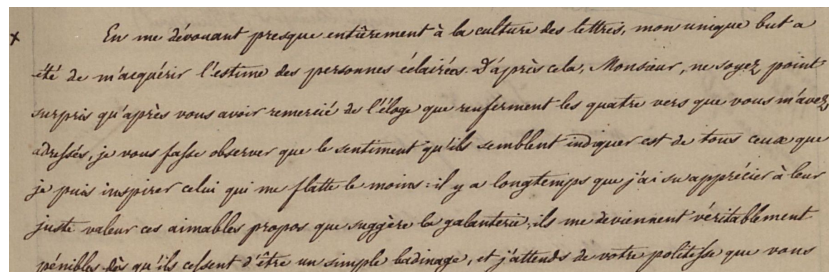 x En me dévouant presque entièrement à la culture des lettres, mon unique but a
été de m'acquérir l'estime des personnes éclairées. D'après cela, Monsieur, ne soyez point
surpris qu'après vous avoir remercié de l'éloge que renferment les quatre vers que vous m'avez
adressés, je vous fasse observer que le sentiment qu'ils semblent indiquer est de tous ceux que
je puis inspirer celui qui me flatte le moins : il y a longtemps que j'ai su apprécier à leur
juste valeur ces aimables propos que suggère la galanterie, ils me deviennent véritablement
pénibles dès qu'ils cessent d'être un simple badinage, et j'attends de votre politesse que vous